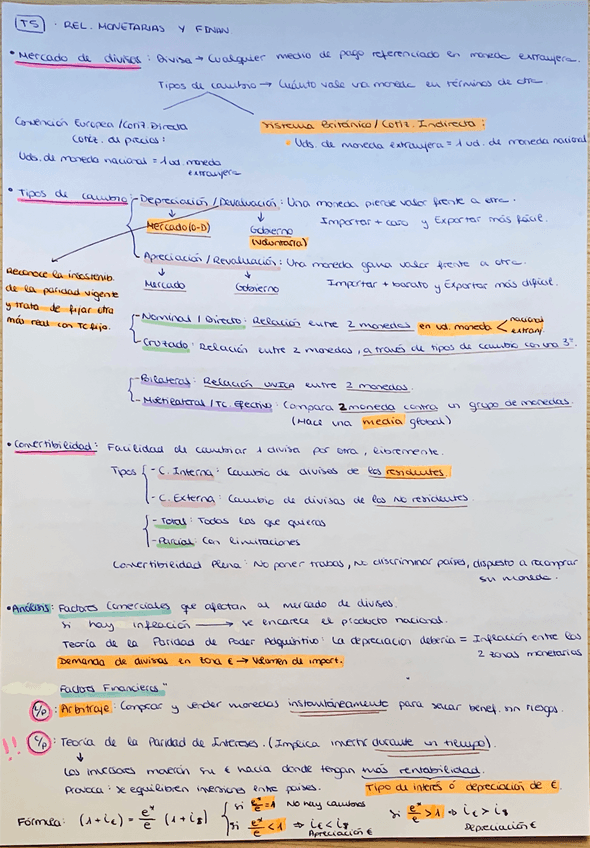 T5 · REL. MONETARIAS Y FINAN
• Mercado de divisas: Divisa → Cualquier medio de pago referenciado en moneda extranjera.
Tipos de cambio → Cuánto vale una moneda en términos de otra
Convención Europea / Cotiz. Directa
Cotiz. de precios:
Uds. de moneda nacional = 1 ud. moneda extranjera
Sistema Británico / Cotiz. Indirecta:
• Uds. de moneda extranjera = 1 ud. de moneda nacional
• Tipos de cambio: - Depreciación / Devaluación: Una moneda pierde valor frente a otra.
Mercado (O-D) Gobierno (voluntaria) Importar + caro y Exportar más fácil.
- Apreciación / Revaluación: Una moneda gana valor frente a otra.
Mercado Gobierno Importar + barato y Exportar más difícil.
Reconoce la insostenib.
de la paridad vigente
y trata de fijar otra
más real con TC fijo.
- Nominal / Directo: Relación entre 2 monedas en ud. moneda < nacional extranj.
- Cruzado: Relación entre 2 monedas, a través de tipos de cambio con una 3ª.
- Bilateral: Relación ÚNICA entre 2 monedas.
- Multilateral / TC. Efectivo: Compara 2 moneda contra un grupo de monedas.
(Hace una media global)
• Convertibilidad: Facilidad de cambiar 1 divisa por otra, libremente.
Tipos - C. Interna: Cambio de divisas de los residentes.
- C. Externa: Cambio de divisas de los NO residentes
- Total: Todas las que quieras
- Parcial: Con limitaciones
Convertibilidad Plena: No poner trabas, no discriminar países, dispuesto a recomprar
su moneda.
• Análisis: Factores Comerciales que afectan al mercado de divisas.
si hay inflación → se encarece el producto nacional.
Teoría de la Paridad de Poder Adquisitivo: La depreciación debería = Inflación entre las
2 zonas monetarias
Demanda de divisas en zona € → Volumen de import.
Factores Financieros "
C/p: Arbitraje: Comprar y vender monedas instantáneamente para sacar benef. sin riesgos.
!! C/p: Teoría de la Paridad de Intereses. (Implica invertir durante un tiempo).
↓
Los inversores moverán su € hacia donde tengan más rentabilidad.
Provoca: se equilibren inversiones entre países. Tipo de interés ó depreciación de €.
Fórmula: (1+i€) = e*/e (1+i$)
si e*/e = 1 No hay cambios
si e*/e < 1 ⇒ i€ < i$ Apreciación €
si e*/e > 1 ⇒ i€ > i$ Depreciación €